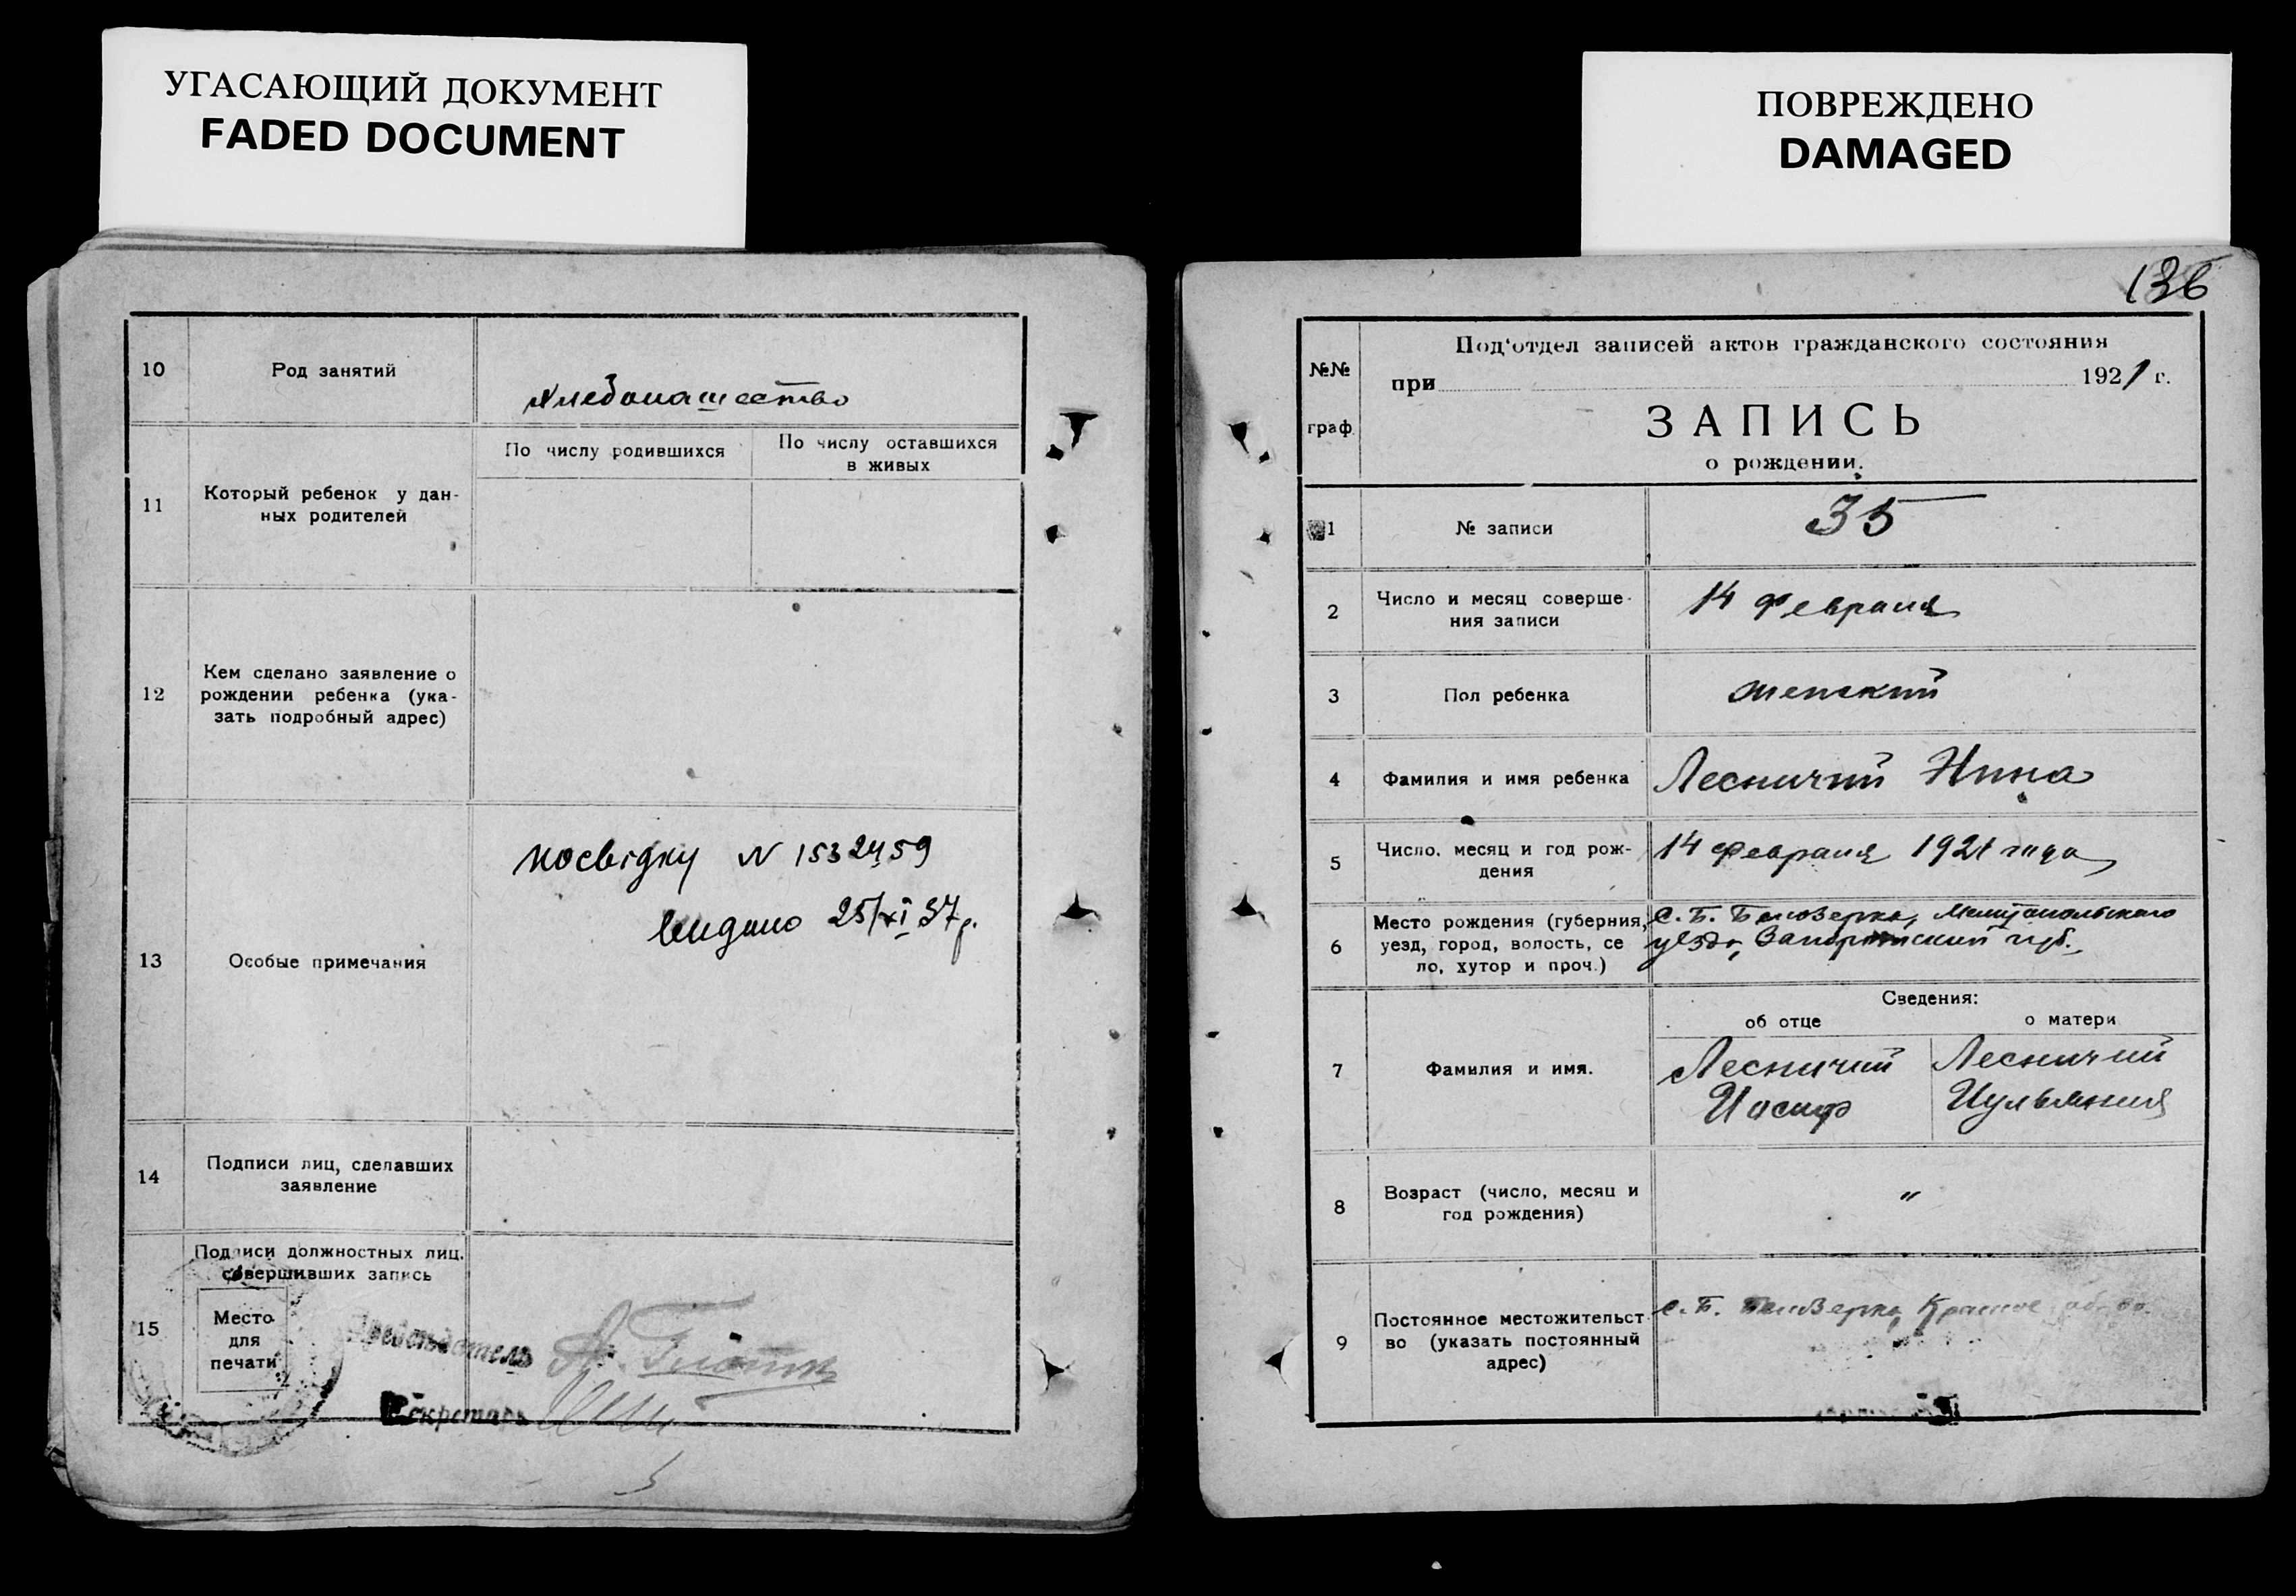 УГАСАЮЩИЙ ДОКУМЕНТ
FADED DOCUMENT
10
Род занятий
хлебопашество
11
Который ребенок у дан-
ных родителей
По числу родившихся
По числу оставшихся
в живых
12
Кем сделано заявление о
рождении ребенка (ука-
зать подробный адрес)
13
Особые примечания
посвідку N 1532459
видано 25/XI 37р.
14
Подписи лиц, сделавших
заявление
15
Подписи должностных лиц.
совершивших запись
Место
для
печати
Председатель
Секретарь
ПОВРЕЖДЕНО
DAMAGED
136
№№
граф.
Под'отдел записей актов гражданского состояния
при 1921 г.
ЗАПИСЬ
о рождении.
1
№ записи
35
2
Число и месяц соверше-
ния записи
14 февраля
3
Пол ребенка
женский
4
Фамилия и имя ребенка
Лесничий Нина
5
Число, месяц и год рож-
дения
14 февраля 1921 года
6
Место рождения (губерния,
уезд, город, волость, се
ло, хутор и проч.)
с. Б. Белозерка, Мелитопольского
уезда, Запорожский губ.
Сведения:
об отце
о матери
7
Фамилия и имя.
Лесничий
Иосиф
Лесничий
Иульяния
8
Возраст (число, месяц и
год рождения)
"
9
Постоянное местожительст-
во (указать постоянный
адрес)
с. Б. Белозерка,